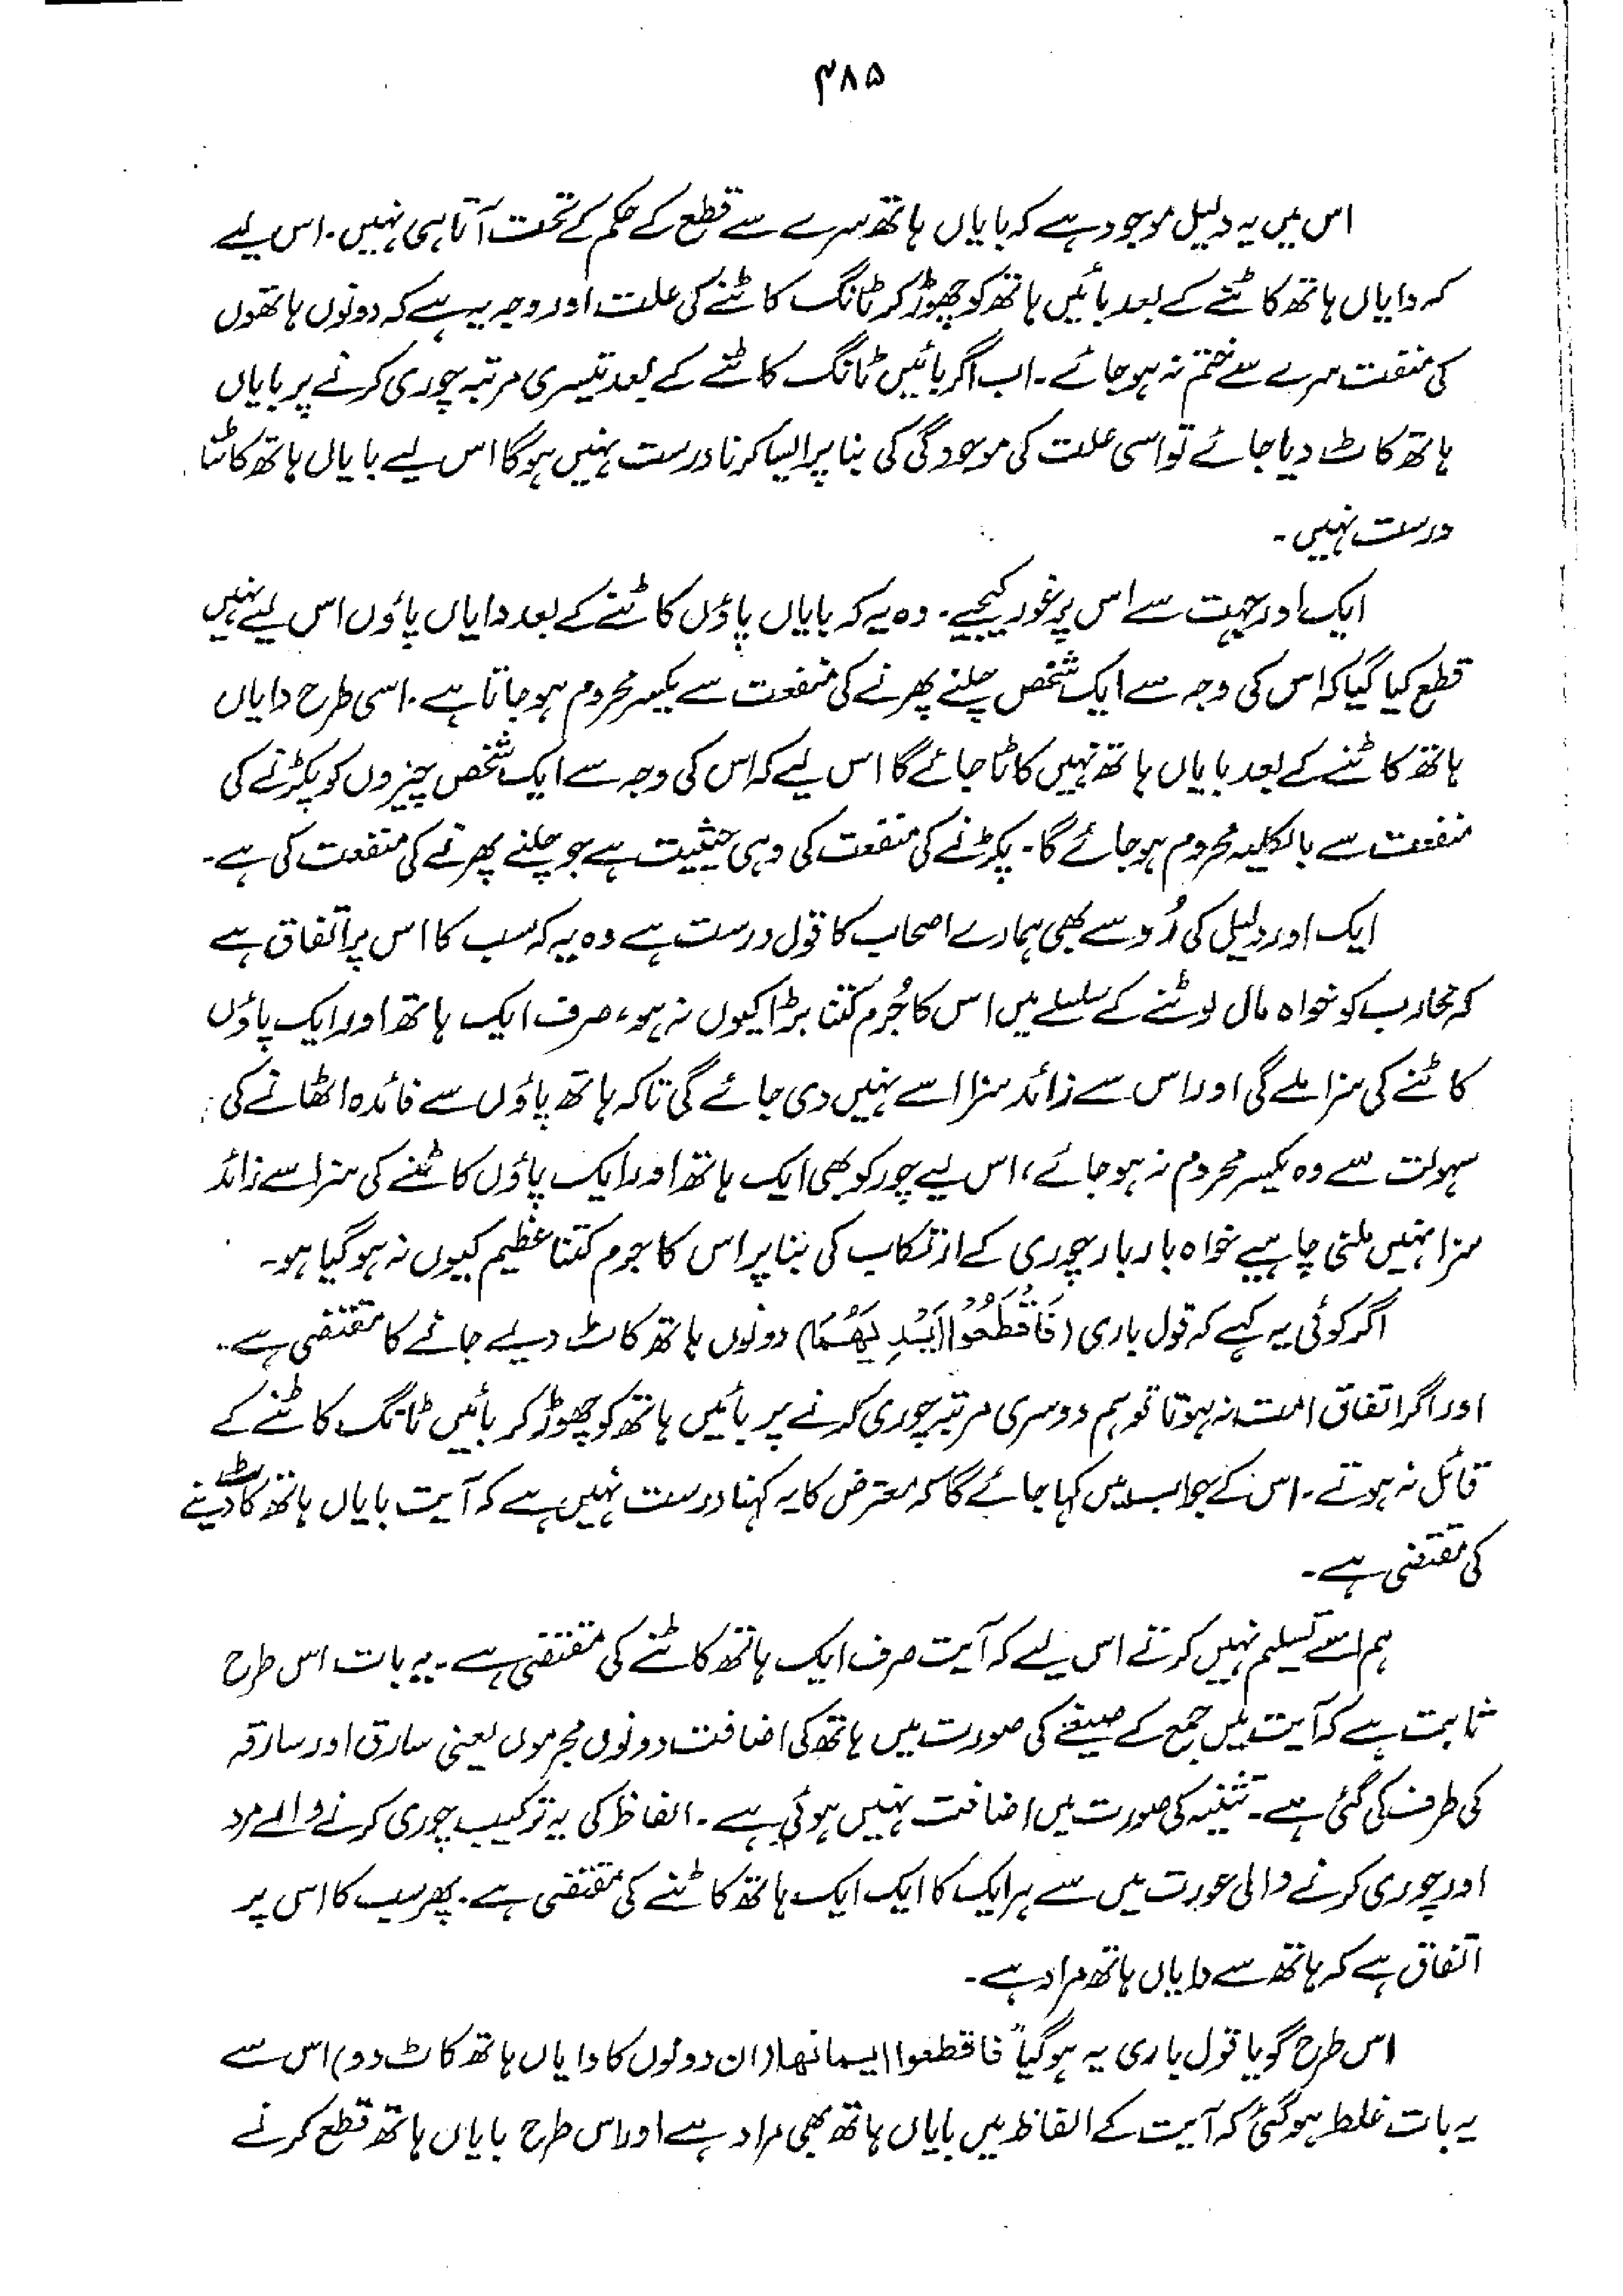 ۳۸۵
اس میں یہ دلیل موجود ہے کہ بایاں ہاتھ سرے سے قطع کے حکم کے تحت آتا ہی نہیں۔ اس لیے
کہ دایاں ہاتھ کاٹنے کے بعد بائیں ہاتھ کو چھوڑ کر ٹانگ کاٹنے کی علت اور وجہ یہ ہے کہ دونوں ہاتھوں
کی منفعت سرے سے ختم نہ ہو جائے۔ اب اگر بائیں ٹانگ کاٹنے کے بعد تیسری مرتبہ چوری کرنے پر بایاں
ہاتھ کاٹ دیا جائے تو اسی علت کی موجودگی کی بنا پر ایسا کرنا درست نہیں ہوگا اس لیے بایاں ہاتھ کاٹنا
درست نہیں۔
ایک اور جہت سے اس پر غور کیجیے۔ وہ یہ کہ بایاں پاؤں کاٹنے کے بعد دایاں پاؤں اس لیے نہیں
قطع کیا گیا کہ اس کی وجہ سے ایک شخص چلنے پھرنے کی منفعت سے یکسر محروم ہو جاتا ہے۔ اسی طرح دایاں
ہاتھ کاٹنے کے بعد بایاں ہاتھ نہیں کاٹا جائے گا اس لیے کہ اس کی وجہ سے ایک شخص چیزوں کو پکڑنے کی
منفعت سے بالکلیہ محروم ہو جائے گا۔ پکڑنے کی منفعت کی وہی حیثیت ہے جو چلنے پھرنے کی منفعت کی ہے۔
ایک اور دلیل کی رُو سے بھی ہمارے اصحاب کا قول درست ہے وہ یہ کہ سب کا اس پر اتفاق ہے
کہ محارب کو خواہ مال لوٹنے کے سلسلے میں اس کا جُرم کتنا بڑا کیوں نہ ہو، صرف ایک ہاتھ اور ایک پاؤں
کاٹنے کی سزا ملے گی اور اس سے زائد سزا اسے نہیں دی جائے گی تاکہ ہاتھ پاؤں سے فائدہ اٹھانے کی
سہولت سے وہ یکسر محروم نہ ہو جائے، اس لیے چور کو بھی ایک ہاتھ اور ایک پاؤں کاٹنے کی سزا سے زائد
سزا نہیں ملنی چاہیے خواہ بار بار چوری کے ارتکاب کی بنا پر اس کا جرم کتنا عظیم کیوں نہ ہو گیا ہو۔
اگر کوئی یہ کہے کہ قول باری (فَاقْطَعُوْا اَیْدِیَهُمَا) دونوں ہاتھ کاٹ دیے جانے کا مقتضی ہے۔
اور اگر اتفاق امت نہ ہوتا تو ہم دوسری مرتبہ چوری کرنے پر بائیں ہاتھ کو چھوڑ کر بائیں ٹانگ کاٹنے کے
قائل نہ ہوتے۔ اس کے جواب میں کہا جائے گا کہ معترض کا یہ کہنا درست نہیں ہے کہ آیت بایاں ہاتھ کاٹ دینے
کی مقتضی ہے۔
ہم اسے تسلیم نہیں کرتے اس لیے کہ آیت صرف ایک ہاتھ کاٹنے کی مقتضی ہے۔ یہ بات اس طرح
ثابت ہے کہ آیت میں جمع کے صیغے کی صورت میں ہاتھ کی اضافت دونوں مجرموں یعنی سارق اور سارقہ
کی طرف کی گئی ہے۔ تثنیہ کی صورت میں اضافت نہیں ہوئی ہے۔ الفاظ کی یہ ترکیب چوری کرنے والے مرد
اور چوری کرنے والی عورت میں سے ہر ایک کا ایک ایک ہاتھ کاٹنے کی مقتضی ہے۔ پھر سب کا اس پر
اتفاق ہے کہ ہاتھ سے دایاں ہاتھ مراد ہے۔
اس طرح گویا قول باری یہ ہو گیا "فاقطعوا ایمانھا (ان دونوں کا دایاں ہاتھ کاٹ دو) اس سے
یہ بات غلط ہو گئی کہ آیت کے الفاظ میں بایاں ہاتھ بھی مراد ہے اور اس طرح بایاں ہاتھ قطع کرنے